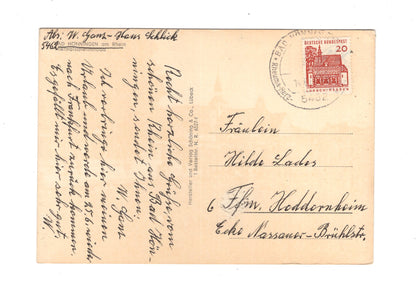 Abs: W. Gans - Haus Schlick
5462 BAD HÖNNINGEN am Rhein
Recht herzliche Grüße vom
schönen Rhein aus Bad Hön-
ningen sendet Ihnen
W. Gans
Ich verbringe hier meinen
Urlaub und werde am 25.6. wieder
nach Frankfurt zurück kommen.
Es gefällt mir hier sehr gut
W.
Hersteller und Verlag Schöning & Co., Lübeck
BAD HÖNNINGEN
5462
DEUTSCHE BUNDESPOST
20
LORSCH/HESSEN
Fräulein
Hilde Lades
6 Ffm. Heddernheim
Ecke Nassauer-Brühlstr.